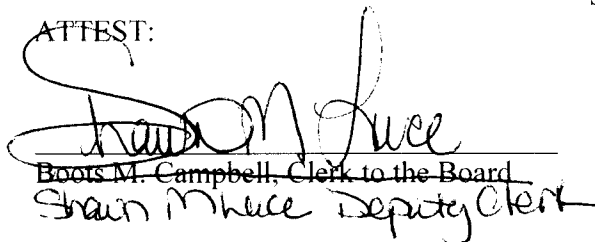 ATTEST:
Shawn M Luce
Boots M. Campbell, Clerk to the Board
Shawn M Luce Deputy Clerk